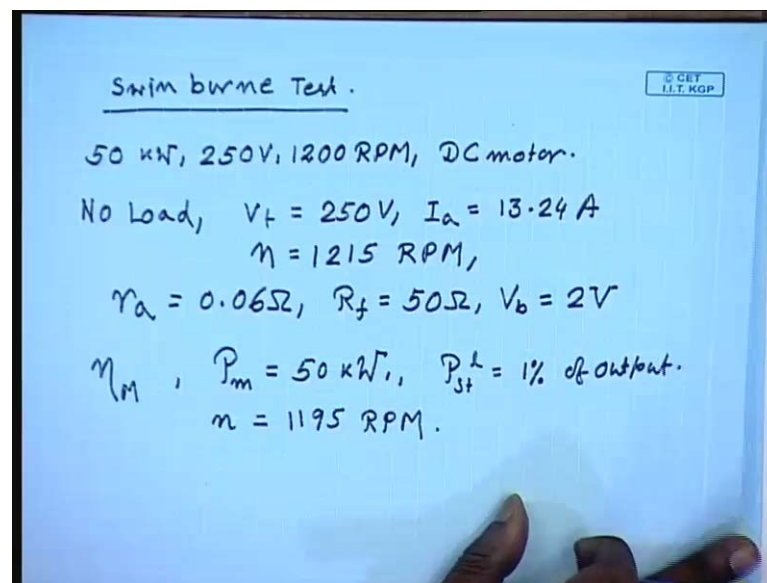 Swinburne Test.
© CET
I.I.T. KGP
50 KW, 250V, 1200 RPM, DC motor.
No Load, Vt = 250V, Ia = 13.24 A
n = 1215 RPM,
ra = 0.06Ω, Rf = 50Ω, Vb = 2V
ηM, Pm = 50 KW,, Pst^L = 1% of output.
n = 1195 RPM.